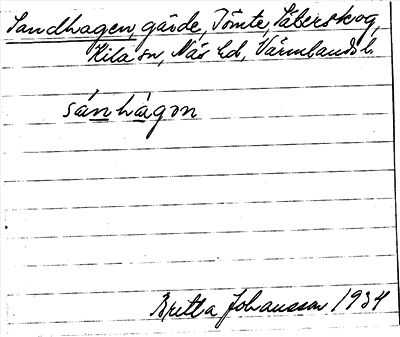 Sandhagen, gärde, Tomte, Säberskog,
Kila sn, Näs hd, Värmlands l.
sánhàgon
Britta Johansson 1934